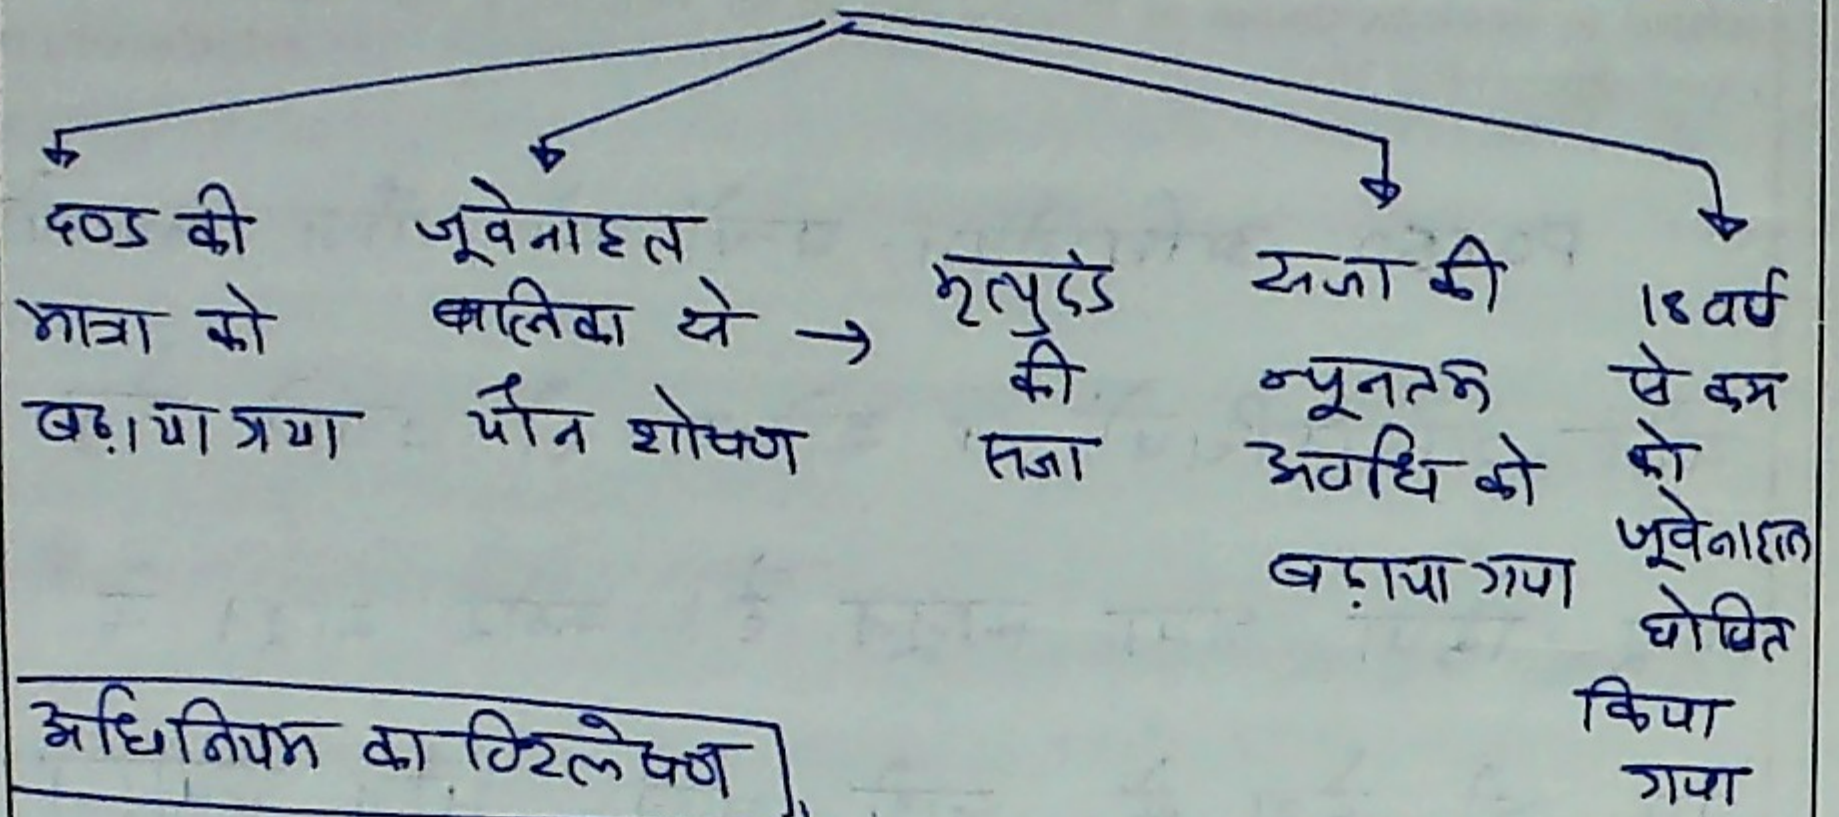 दण्ड की
मात्रा को
बढ़ाया गया
जूवेनाइल
बालिका से →
यौन शोषण
मृत्युदंड
की
सजा
सजा की
न्यूनतम
अवधि को
बढ़ाया गया
18 वर्ष
से कम
को
जूवेनाइल
घोषित
किया
गया
अधिनियम का विश्लेषण